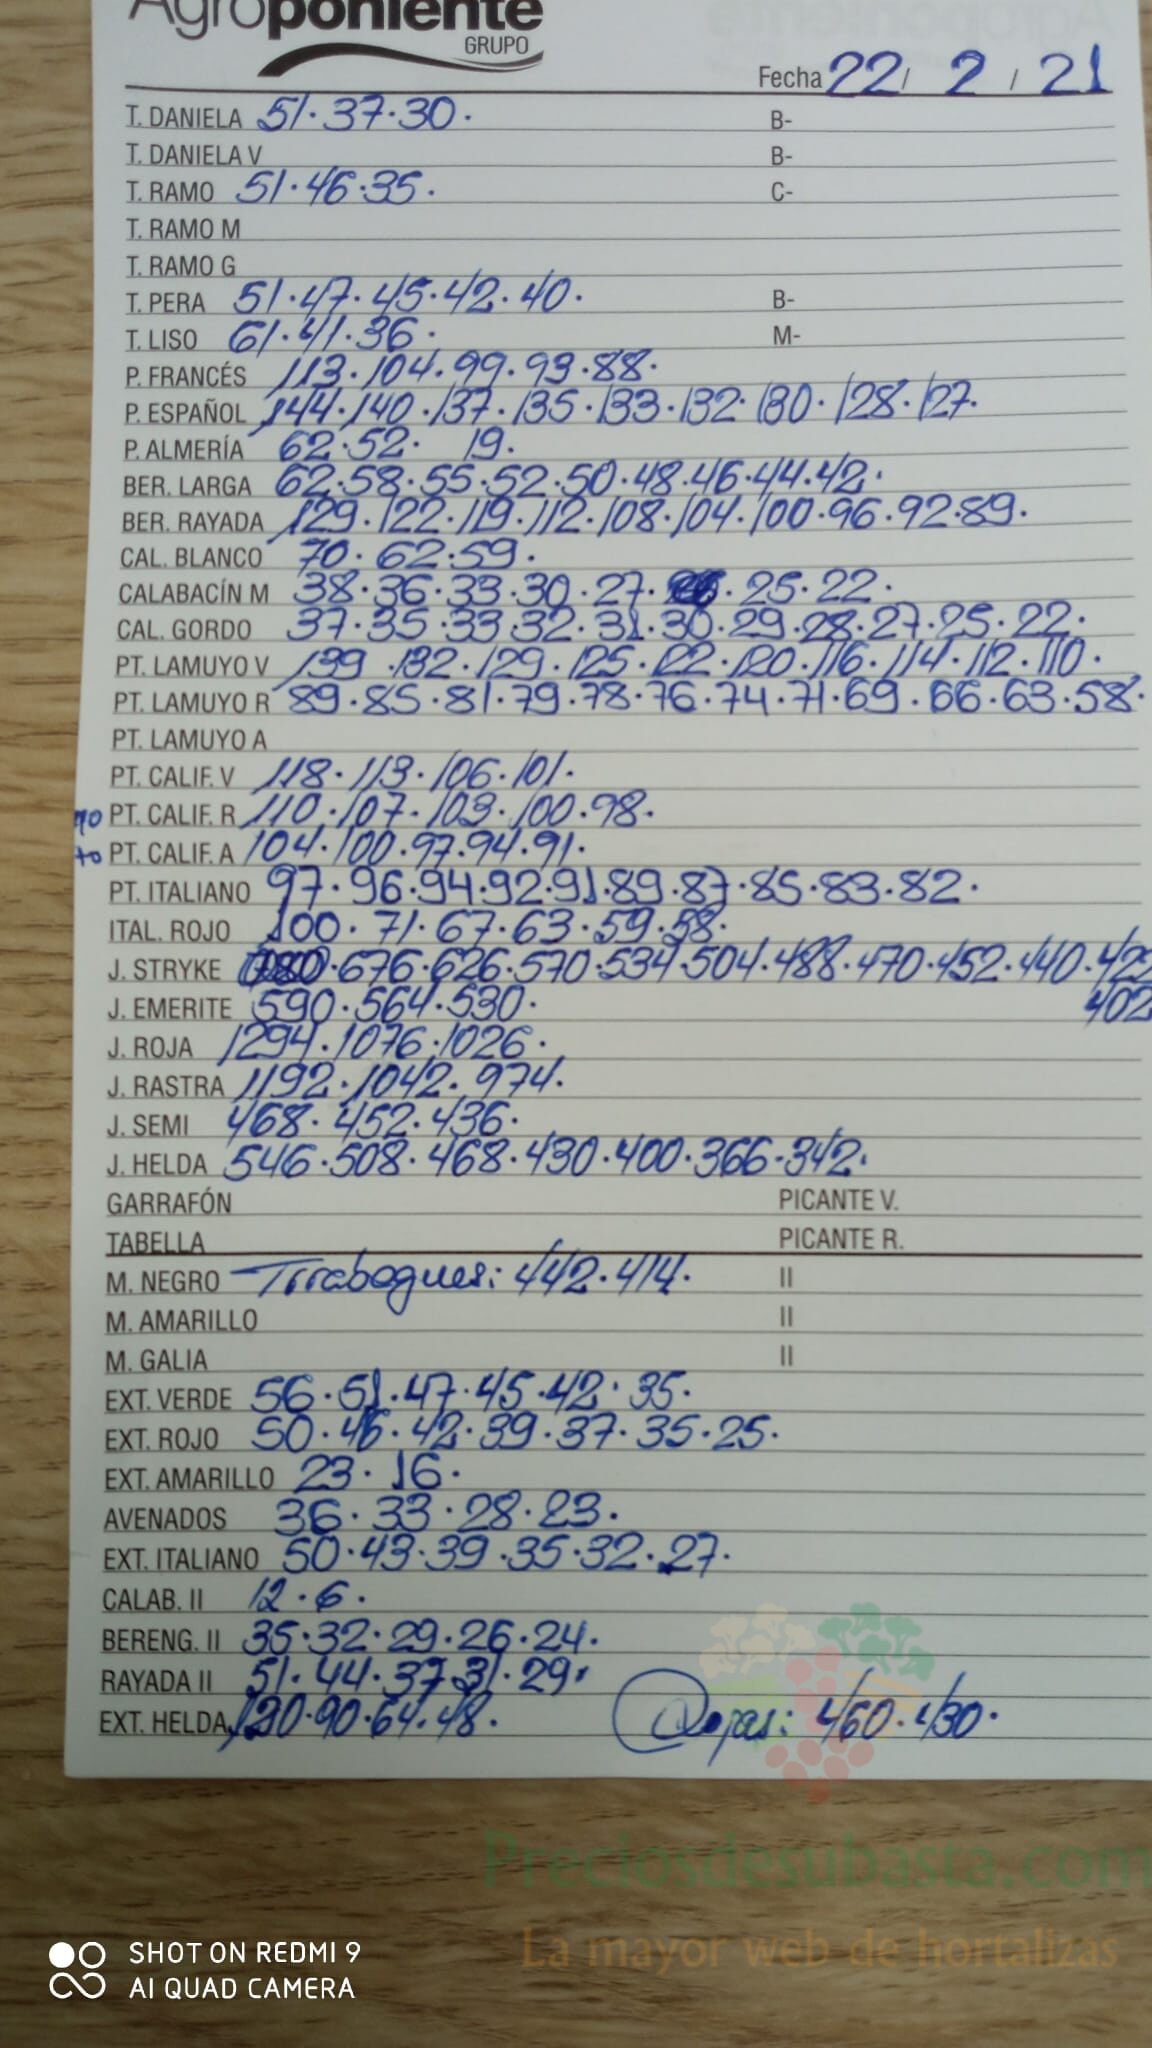 Agroponiente
GRUPO
Fecha 22 / 2 / 21
T. DANIELA 51·37·30· B-
T. DANIELA V B-
T. RAMO 51·46·35· C-
T. RAMO M
T. RAMO G
T. PERA 51·47·45·42·40· B-
T. LISO 61·41·36· M-
P. FRANCÉS 113·104·99·93·88·
P. ESPAÑOL 144·140·137·135·133·132·130·128·127·
P. ALMERÍA 62·52· 19·
BER. LARGA 62·58·55·52·50·48·46·44·42·
BER. RAYADA 129·122·119·112·108·104·100·96·92·89·
CAL. BLANCO 70·62·59·
CALABACÍN M 38·36·33·30·27· ·25·22·
CAL. GORDO 37·35·33·32·31·30·29·28·27·25·22·
PT. LAMUYO V 139·132·129·125·122·120·116·114·112·110·
PT. LAMUYO R 89·85·81·79·78·76·74·71·69·66·63·58·
PT. LAMUYO A
PT. CALIF. V 118·113·106·101·
90 PT. CALIF. R 110·107·103·100·98·
PT. CALIF. A 104·100·97·94·91·
PT. ITALIANO 97·96·94·92·91·89·87·85·83·82·
ITAL. ROJO 100·71·67·63·59·58·
J. STRYKE ·676·626·570·534·504·488·470·452·440·422
402
J. EMERITE 590·564·530·
J. ROJA 1294·1076·1026·
J. RASTRA 1192·1042·974·
J. SEMI 468·452·436·
J. HELDA 546·508·468·430·400·366·342·
GARRAFÓN PICANTE V.
TABELLA PICANTE R.
M. NEGRO Tirabeques: 442·414· II
M. AMARILLO II
M. GALIA II
EXT. VERDE 56·51·47·45·42·35·
EXT. ROJO 50·46·42·39·37·35·25·
EXT. AMARILLO 23·16·
AVENADOS 36·33·28·23·
EXT. ITALIANO 50·43·39·35·32·27·
CALAB. II 12·6·
BERENG. II 35·32·29·26·24·
RAYADA II 51·44·37·31·29·
EXT. HELDA 120·90·64·48· 460·430·
Preciosdesubasta.com
La mayor web de hortalizas
SHOT ON REDMI 9
AI QUAD CAMERA